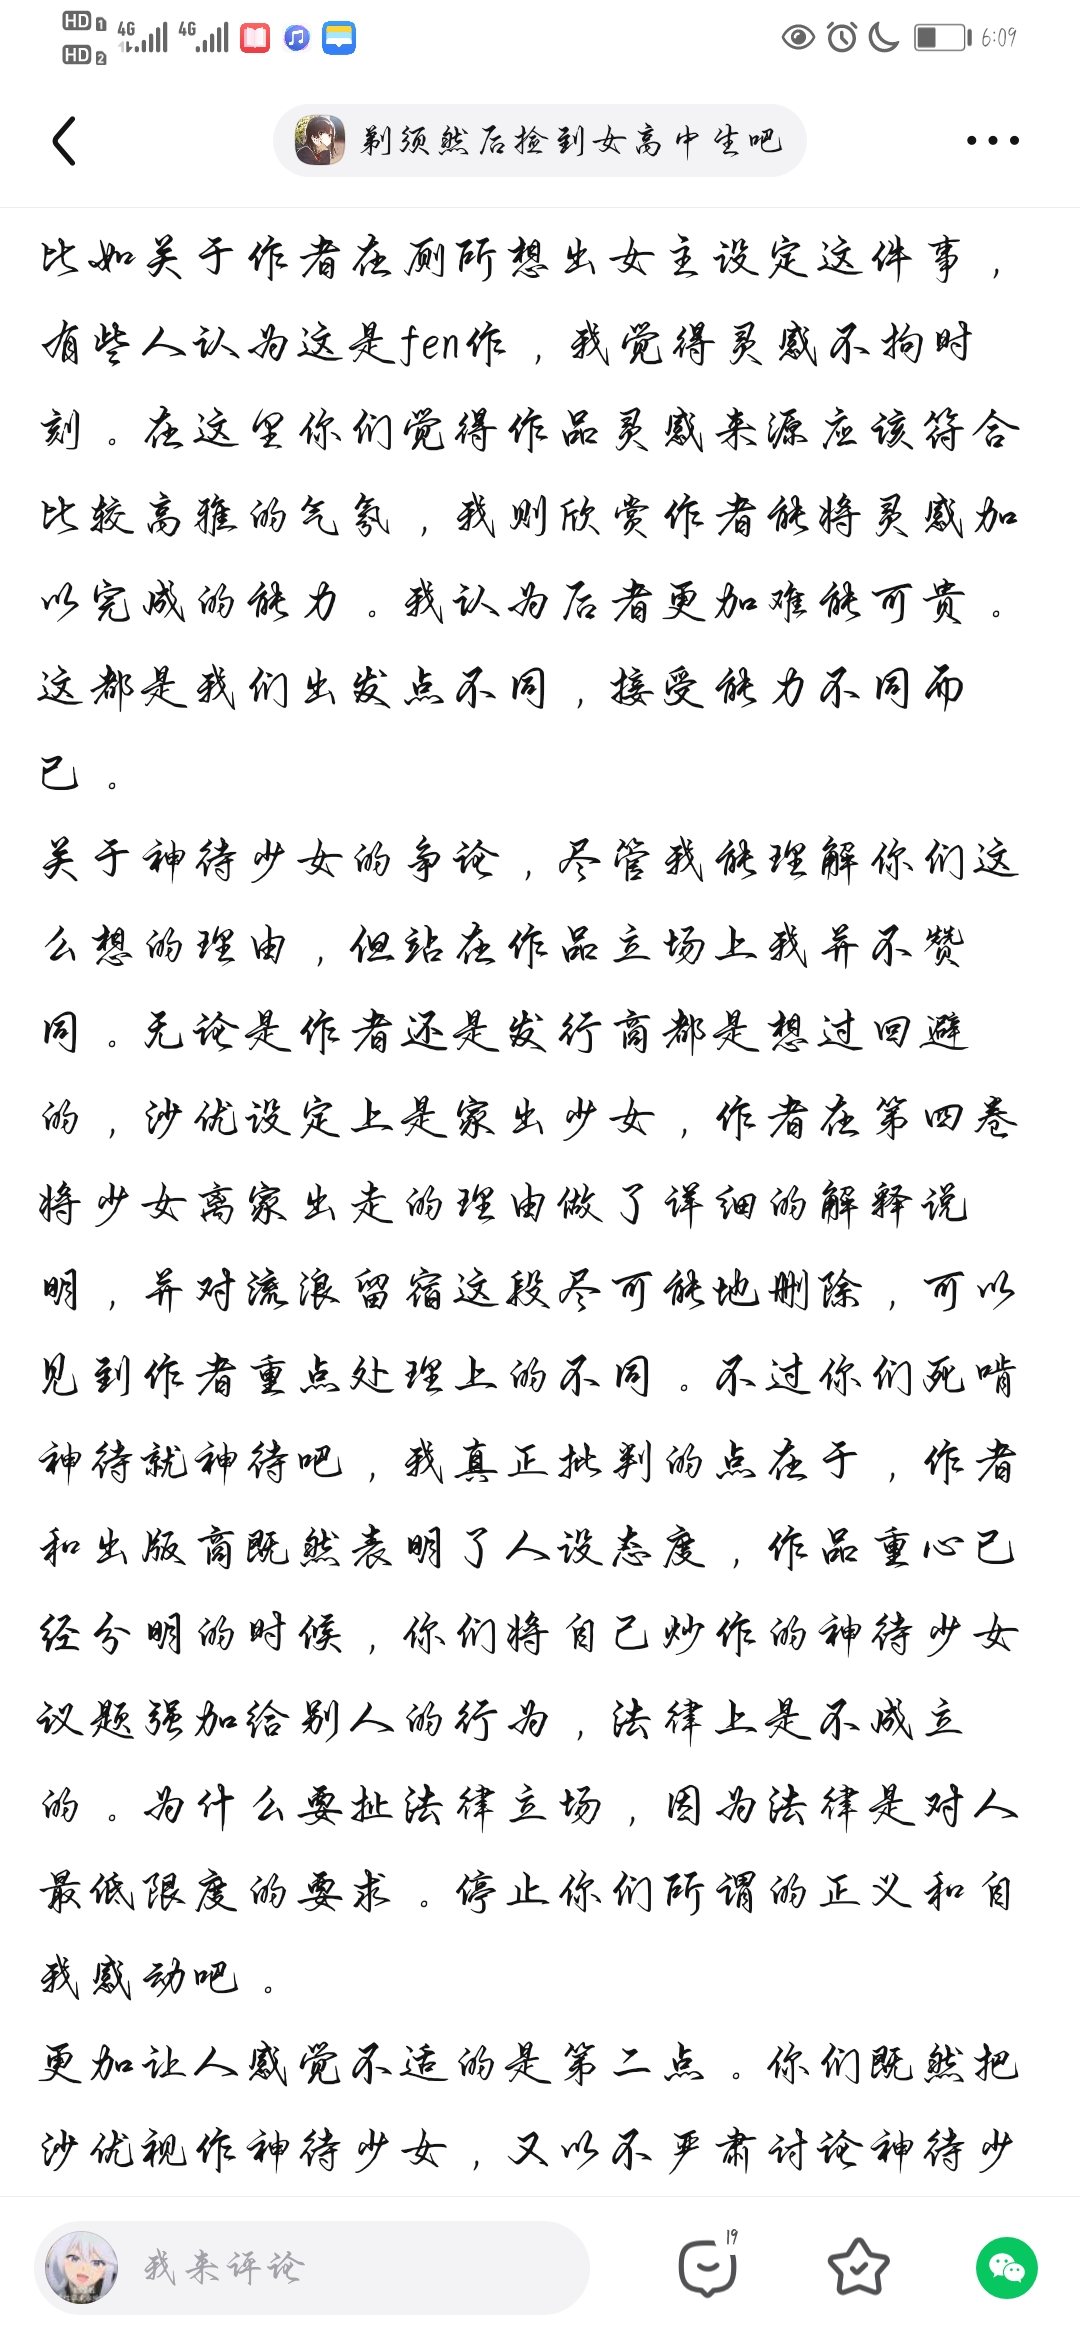 HD 1 4G 4G 6:09
HD 2
剃须然后捡到女高中生吧
比如关于作者在厕所想出女主设定这件事，
有些人认为这是fen作，我觉得灵感不拘时
刻。在这里你们觉得作品灵感来源应该符合
比较高雅的气氛，我则欣赏作者能将灵感加
以完成的能力。我认为后者更加难能可贵。
这都是我们出发点不同，接受能力不同而
已。
关于神待少女的争论，尽管我能理解你们这
么想的理由，但站在作品立场上我并不赞
同。无论是作者还是发行商都是想过回避
的，沙优设定上是家出少女，作者在第四卷
将少女离家出走的理由做了详细的解释说
明，并对流浪留宿这段尽可能地删除，可以
见到作者重点处理上的不同。不过你们死啃
神待就神待吧，我真正批判的点在于，作者
和出版商既然表明了人设态度，作品重心已
经分明的时候，你们将自己炒作的神待少女
议题强加给别人的行为，法律上是不成立
的。为什么要扯法律立场，因为法律是对人
最低限度的要求。停止你们所谓的正义和自
我感动吧。
更加让人感觉不适的是第二点。你们既然把
沙优视作神待少女，又以不严肃讨论神待少
我来评论
19